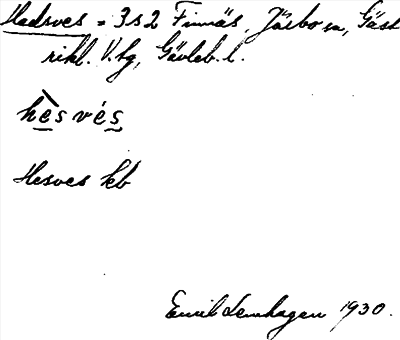 Hedsves = 3s2 Finnäs, Järbo sn, Gäst
rikl. V. tg, Gävleb. l.
hèsvés
Hesves kb
Emil Lenhagen 1930.